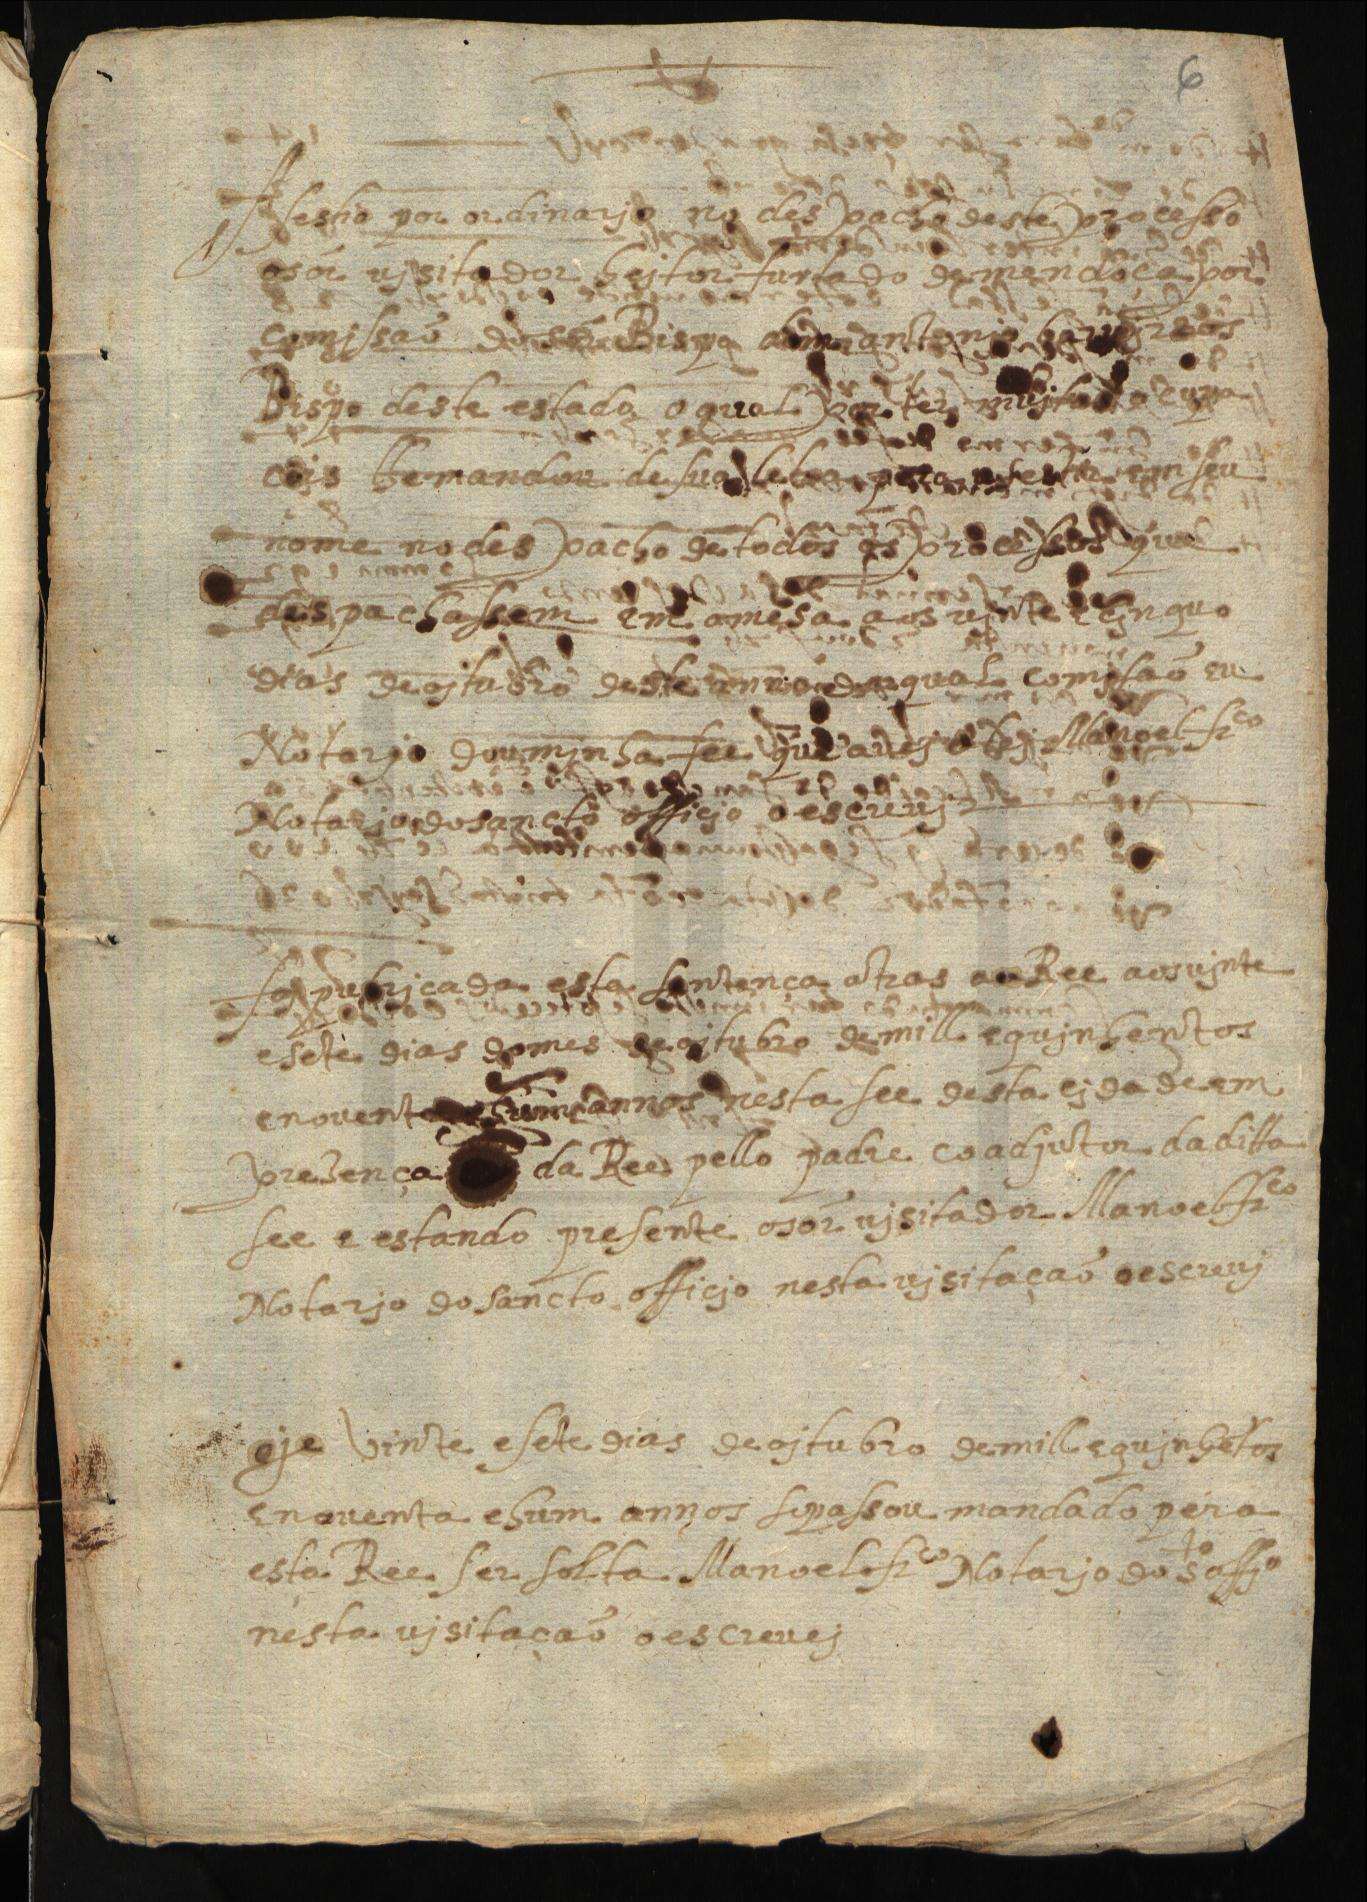 6
Assestio por ordinario no despacho deste processo
osōr visitador heitor furtado de mendoça por
comissaõ do sōr Bispo dom antonio barreiros
Bispo deste estado o qual por ter muitas occupa
cõis me mandou de sua letra pera assestir em seu
nome no despacho de todos os processos que
despachassem em a mesa aos vinte e cinquo
dias de oitubro deste anno da qual comissaõ eu
Notario dou minha fee que a vej e lij Manoel frco
Notario do sancto officio o escrevj
foj pubricada esta sentença atras a Ree aos vinte
e sete dias do mes de oitubro de mill e quinhentos
e noventa e hum annos nesta see desta cidade em
presença da Ree pello padre coadjutor da ditta
see e estando presente osōr visitador Manoel frco
Notario do sancto officio nesta visitaçaõ o escrevj
oje vinte e sete dias de oitubro de mill e quinhētos
e noventa e hum annos se passou mandado pera
esta Ree ser solta Manoel frco Notario do sto offo
nesta visitaçaõ o escrevej